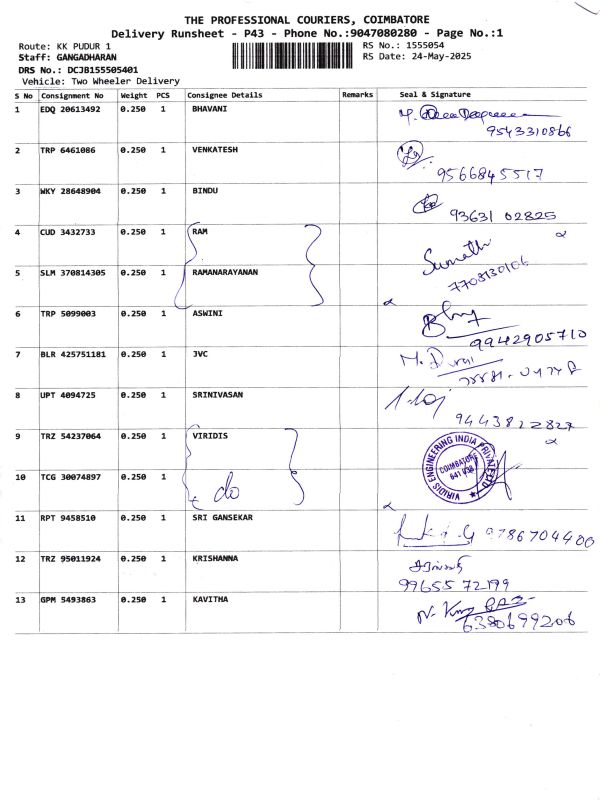 THE PROFESSIONAL COURIERS, COIMBATORE
Delivery Runsheet - P43 - Phone No.:9047080280 - Page No.:1
Route: KK PUDUR 1 RS No.: 1555054
Staff: GANGADHARAN RS Date: 24-May-2025
DRS No.: DCJB155505401
Vehicle: Two Wheeler Delivery
S No Consignment No Weight PCS Consignee Details Remarks Seal & Signature
1 EDQ 20613492 0.250 1 BHAVANI
9543310866
2 TRP 6461086 0.250 1 VENKATESH
9566845517
3 WKY 28648904 0.250 1 BINDU
93631 02825
4 CUD 3432733 0.250 1 RAM
Sumathi
7708130106
5 SLM 370814305 0.250 1 RAMANARAYANAN
6 TRP 5099003 0.250 1 ASWINI
9942905710
7 BLR 425751181 0.250 1 JVC
M. Durai
8 UPT 4094725 0.250 1 SRINIVASAN
9443822827
9 TRZ 54237064 0.250 1 VIRIDIS
VIRIDIS ENGINEERING INDIA PRIVATE LTD
COIMBATORE
641 038
10 TCG 30074897 0.250 1 do
11 RPT 9458510 0.250 1 SRI GANSEKAR
9786704400
12 TRZ 95011924 0.250 1 KRISHANNA
99655 72199
13 GPM 5493863 0.250 1 KAVITHA
6380699206